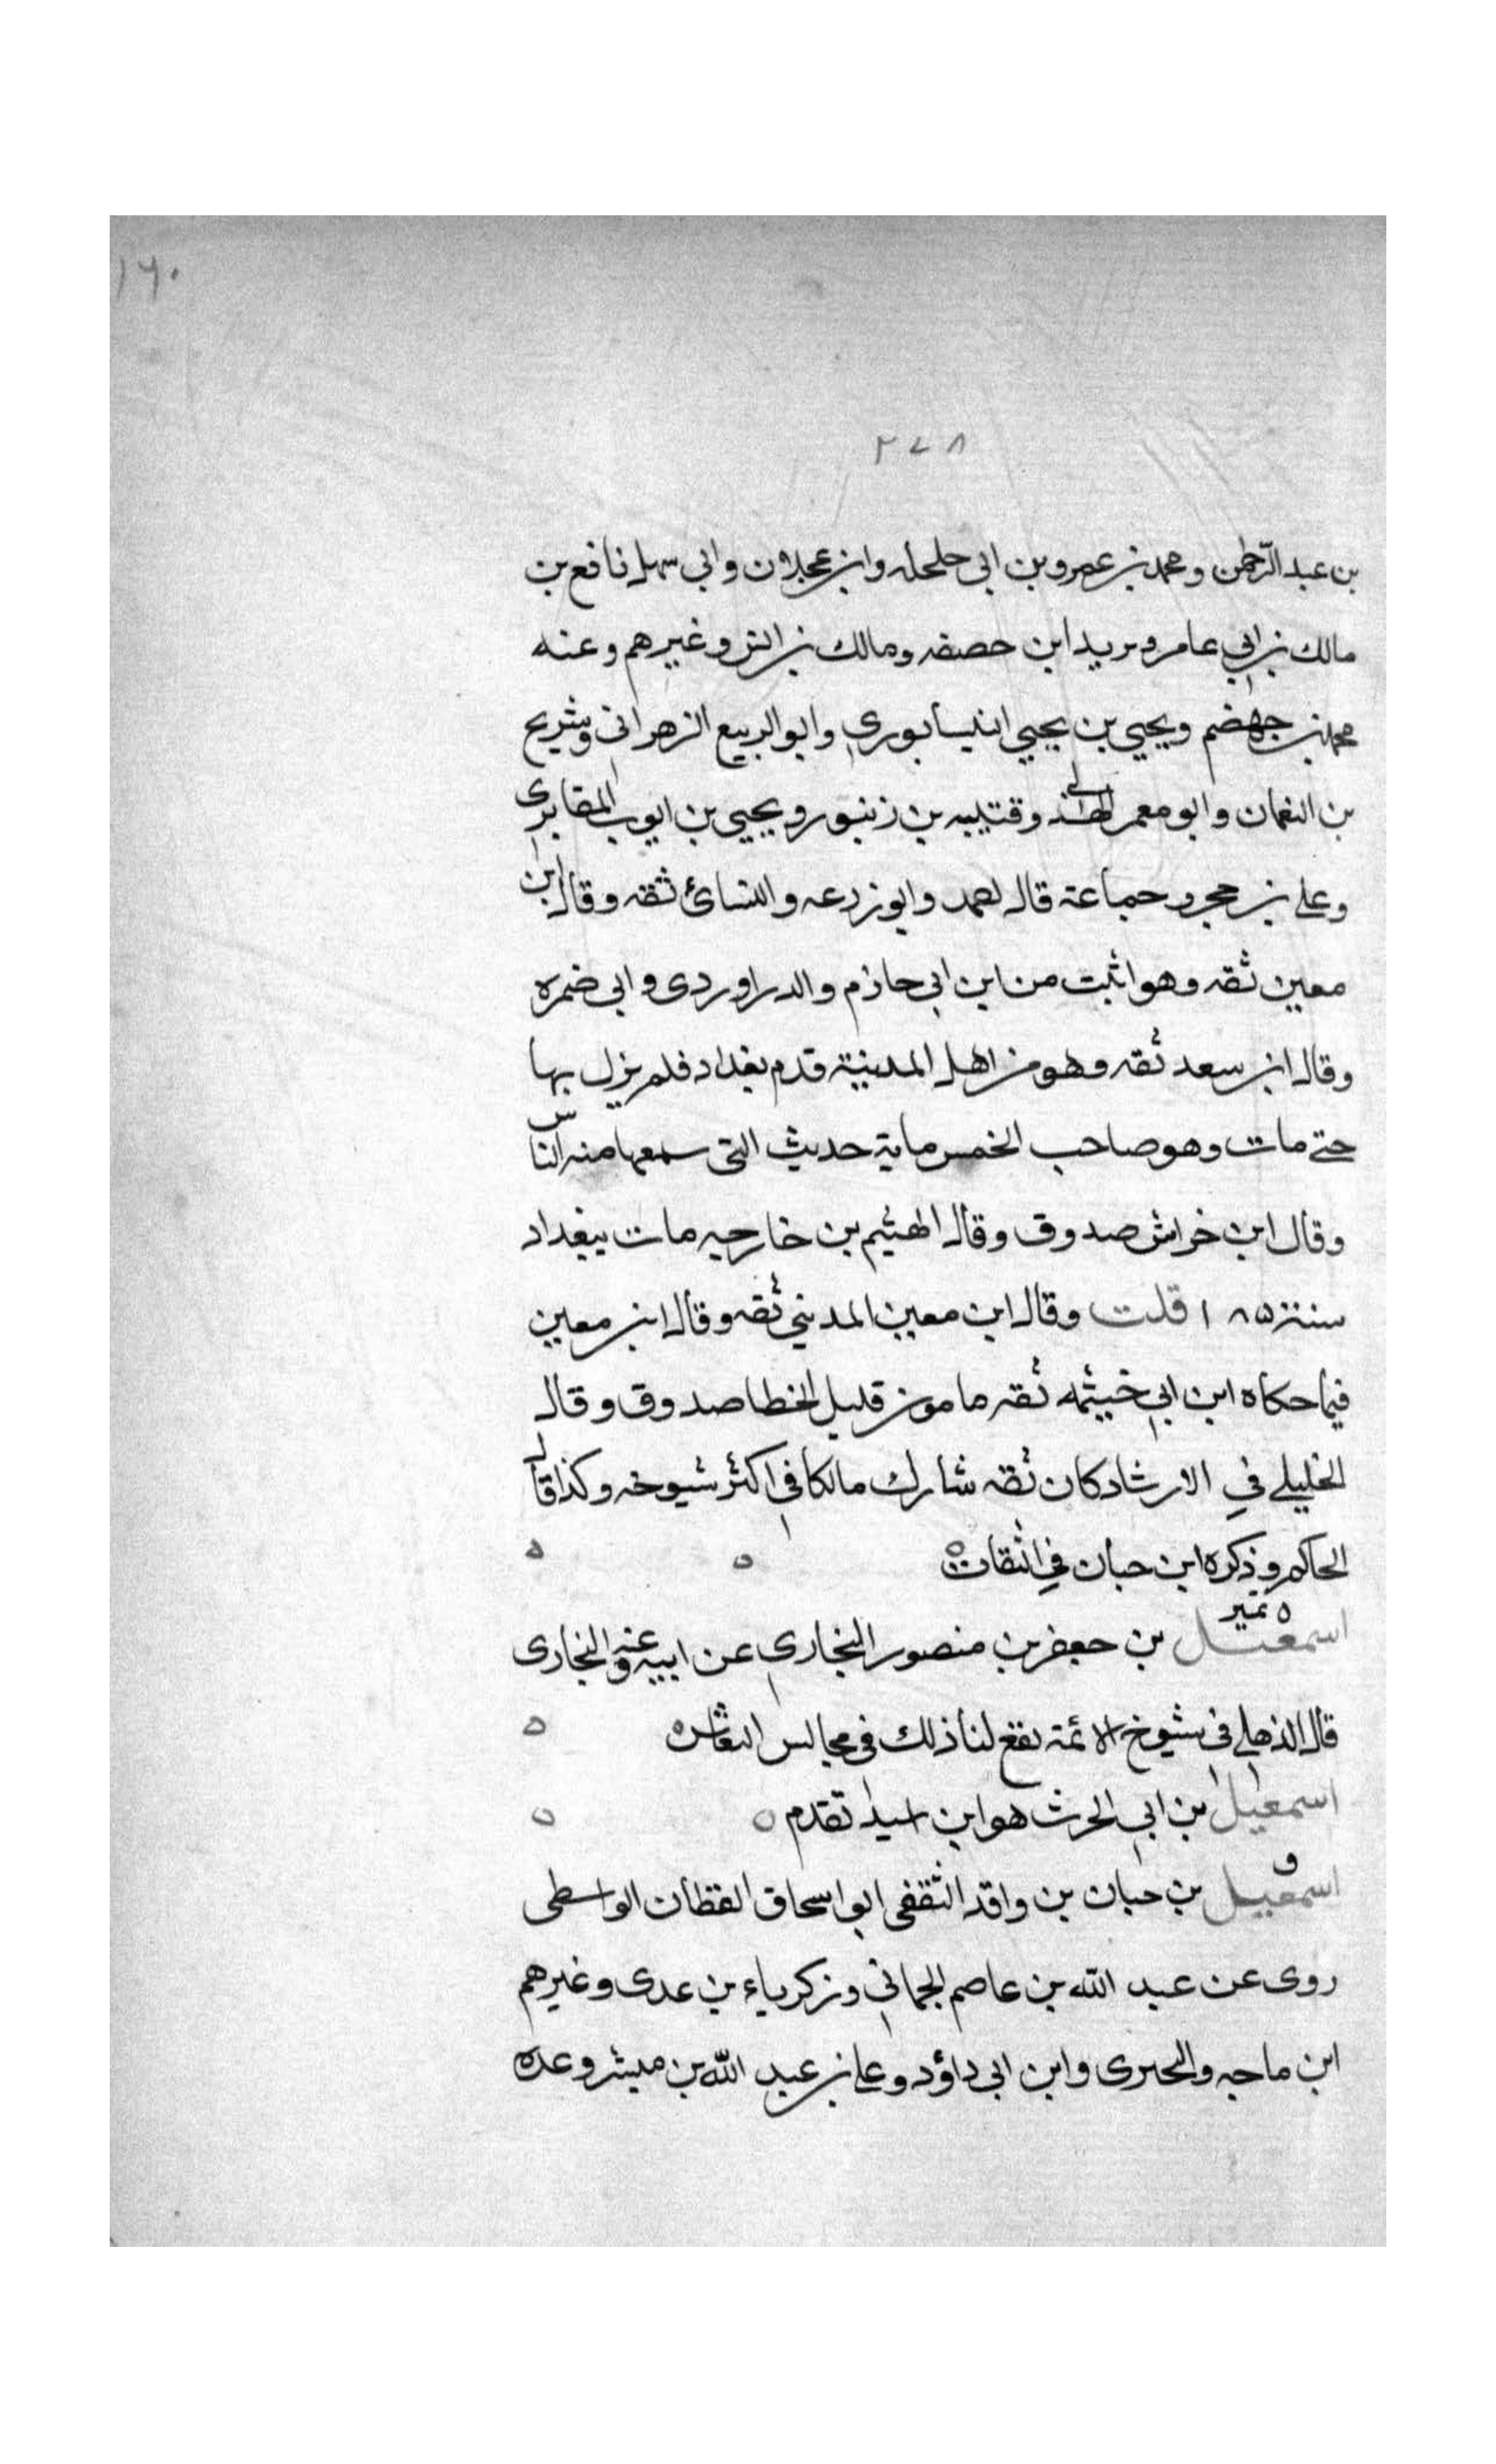 ١٦٠
٢٧٨
بن عبد الرحمن ومحمد بن عمرو بن ابي حلحله وابن عجلان وابي سهل نافع بن
مالك بن ابي عامر ويريد ابن حصفه ومالك بن انس وغيرهم وعنه
محمد بن جهضم ويحيي بن يحيي النيسابوري وابو الربيع الزهراني وشريح
بن النعمان وابو معمر الهذلي وقتيبه بن زنبور ويحيي بن ايوب المقابري
وعلي بن حجر وجماعة قال احمد وابو زرعه والنسائ ثقه وقال ابن
معين ثقه وهو اثبت من ابن ابي حازم والدراوردى وابي ضمره
وقال ابن سعد ثقه وهو من اهل المدينة قدم بغداد فلم يزل بها
حتى مات وهو صاحب الخمس ماية حديث التى سمعها منه الناس
وقال ابن خراش صدوق وقال الهيثم بن خارجه مات ببغداد
سنة ١٨٥ قلت وقال ابن معين المديني ثقه وقال ابن معين
فيما حكاه ابن ابي خيثمه ثقه مامون قليل الخطا صدوق وقال
الخليلي في الارشاد كان ثقه شارك مالكا في اكثر شيوخه وكذا قال
الحاكم وذكره ابن حبان في الثقات
تمير
اسمعيل بن جعفر بن منصور البخاري عن ابيه وعنه البخارى
قال الذهلي في شيوخ الائمة يقع لنا ذلك في مجالس النقاش
اسمعيل بن ابي الحرث هو ابن اسيد تقدم
ق
اسمعيل بن حبان بن واقد الثقفى ابو اسحاق القطان الواسطى
روى عن عبد الله بن عاصم الجماني وزكرياء بن عدى وغيرهم
ابن ماجه والحيرى وابن ابي داؤد وعلي بن عبد الله بن مبشر وعده